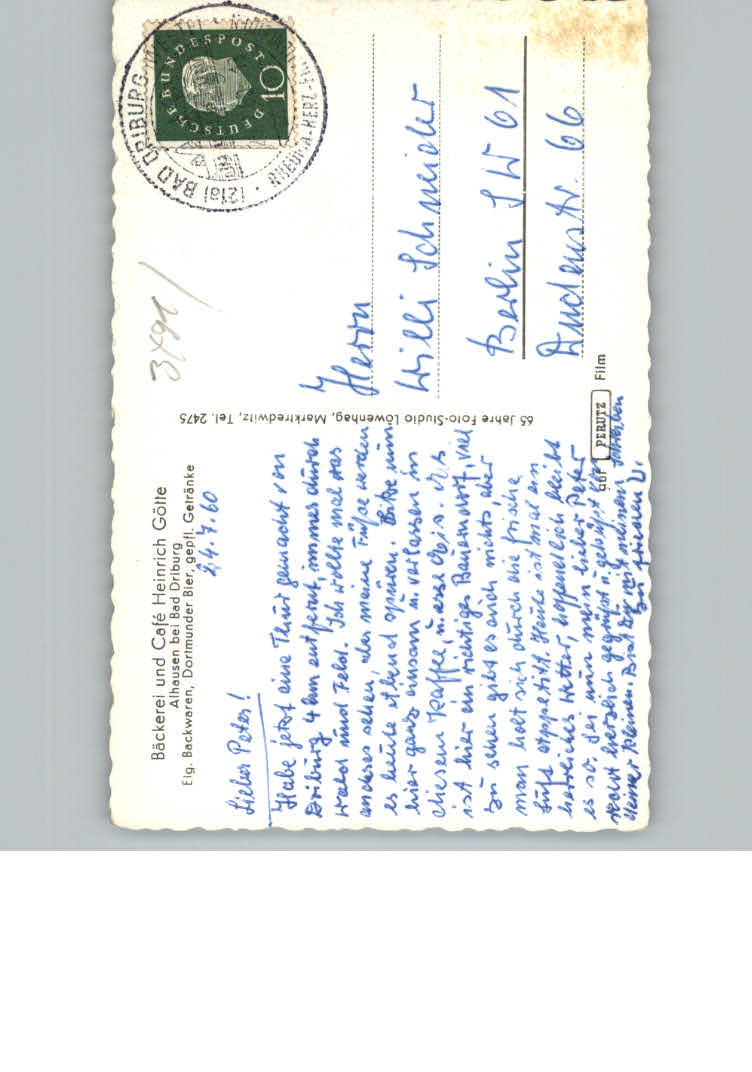 Bäckerei und Café Heinrich Götte
Alhausen bei Bad Driburg
Eig. Backwaren, Dortmunder Bier, gepfl. Getränke
24.7.60
Lieber Peter!
Habe jetzt eine Thur gemacht von
Driburg 4 km entfernt, immer durch
Wald und Feld. Ich wollte mal was
anderes sehen, aber meine Füße werden
es heute Abend spüren. Sitze nun
hier ganz einsam u. verlassen in
diesem Kaffee, u. esse Eis. Es
ist hier ein richtiges Bauerndorf, viel
zu sehen gibt es auch nichts, aber
man holt sich durch die frische
Luft Appetitt. Heute ist mal ein
herrliches Wetter, hoffentlich bleibt
es so. Sei nun mein lieber Peter
recht herzlich gegrüßt u. geküßt
Deiner Kleinen. Bist Du mit meinem Schreiben
zu frieden D.
65 Jahre Foto-Studio Löwenhag, Marktredwitz, Tel. 2475
auf PERUTZ Film
DEUTSCHE BUNDESPOST
10
(21a) BAD DRIBURG
RHEUMA-HERZ-
3491
Herrn
Willi Schneider
Berlin SW 61
Dudenstr. 66